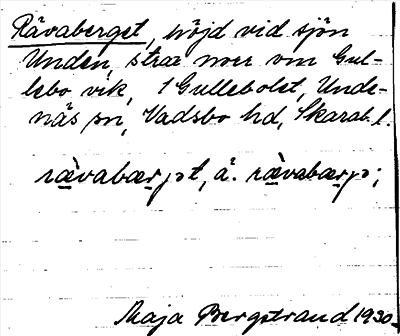 Rävaberget, höjd vid sjön
Unden, strax norr om Gul-
lebo vik, 1 Gullebolet, Unde-
näs sn, Vadsbo hd, Skarab. l.
rävabærjət, ä. rävabærjə;
Maja Bergstrand 1930.